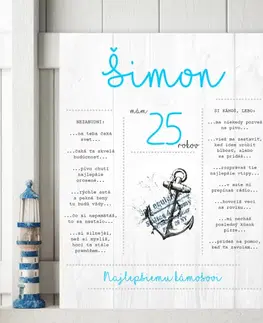 Šimon
mám
25
rokov
NEZABUDNI:
...na teba čaká
svet...
...čaká ťa skvelá
budúcnosť...
...pivo chutí
najlepšie
orosené...
...rýchle autá
a pekné ženy
tu budú vždy...
...čo si nepamätáš,
to sa nestalo...
...si silnejší,
než si myslíš,
hoci ťa stále
predbehnem...
SI KÁMOŠ, LEBO:
...ma niekedy pozveš
na pivo...
...vieš ma nastaviť,
keď idem urobiť
blbosť, alebo
sa pridáš...
...rozprávaš tie
najlepšie vtipy...
...v aute mi
prepínaš rádio...
...hovoríš veci
na rovinu...
...mi necháš
posledný kúsok
pizze...
...prídeš na pomoc,
keď ťa zavolám...
Najlepšiemu kámošovi